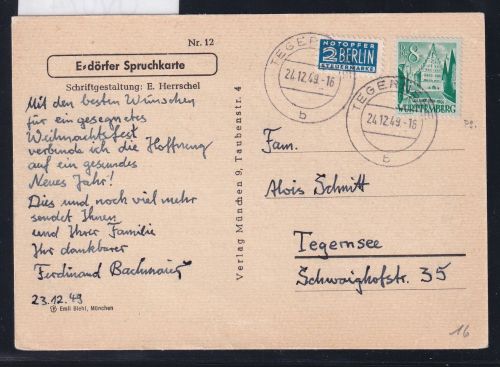 Nr. 12
Erdörfer Spruchkarte
Schriftgestaltung: E. Herrschel
Mit den besten Wünschen
für ein gesegnetes
Weihnachtsfest
verbinde ich die Hoffnung
auf ein gesundes
Neues Jahr!
Dies und noch viel mehr
sendet Ihnen
und Ihrer Familie
Ihr dankbarer
Ferdinand
23.12.49
Emil Biehl, München
Verlag München 9, Taubenstr. 4
NOTOPFER
2 BERLIN
STEUERMARKE
8
WÜRTTEMBERG
TEGER
24.12.49.-16
b
TEGER
24.12.49.-16
b
Fam.
Alois Schmitt
Tegernsee
Schwaighofstr. 35
16